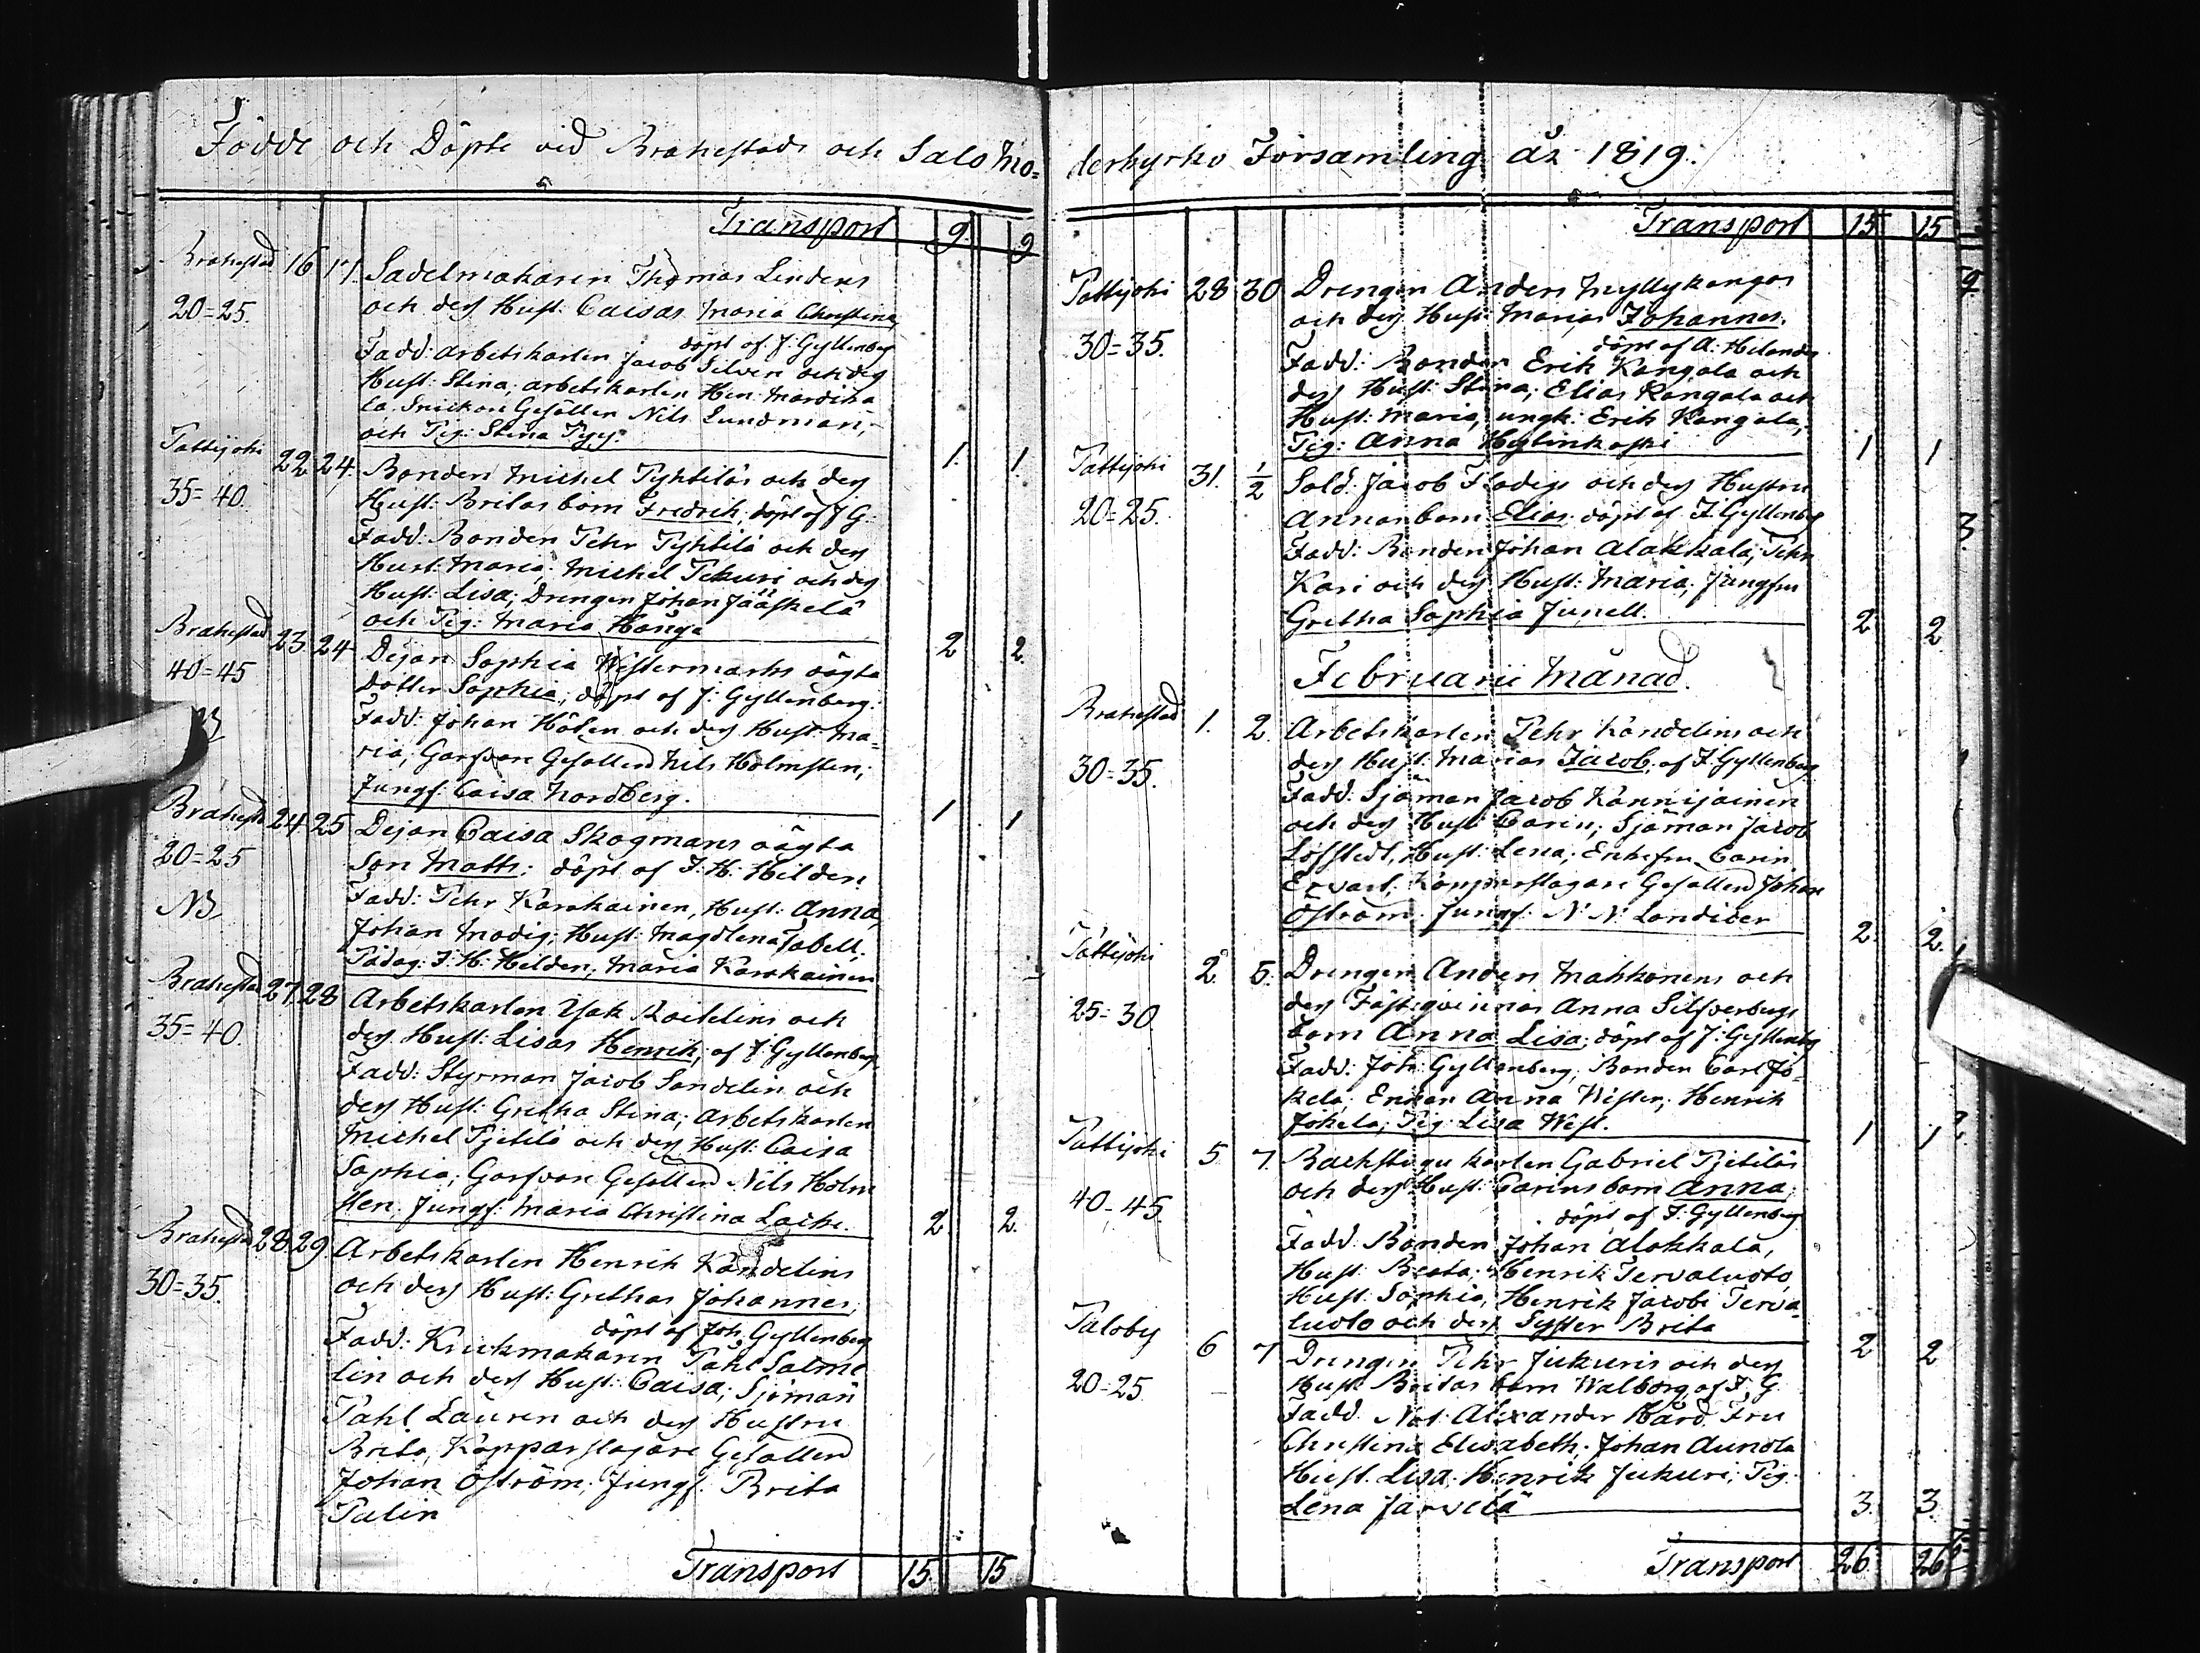 Födde och Döpte vid Brahestads och Salo Mo=
Transport 9. 9
Brahestad 16 17. Sadelmakaren Thomas Lindens
20=25. och des Hust: Caisas Maria Christina,
döpt af J: Gyllenberg
Fadd: arbetskarlen Jacob Silvén och des
Hust: Stina; arbetskarlen Hen: Mardika
la, Snickare Gesällen Nils Lundman,
och Pig: Stina Pyy. 1. 1.
Pattijoki 22 24. Bonden Michel Pyhtiläs och des
35=40. Hust: Britas barn Fredrik, döpt af J G.
Fadd: Bonden Pehr Pyhtilä och des
Hust: Maria; Michel Pekuri och des
Hust: Lisa; Drengen Johan Jääskelä
och Pig: Maria Hanga 2 2.
Brahestad 23 24 Dejan Sophia Westermarks oägta
40=45 dotter Sophia; döpt af J: Gyllenberg.
Fadd: Johan Hölen och des Hust: Ma=
ria, Garfvare Gesällen Nils Holmsten;
Jungf: Caisa Nordberg. 1 1
Brahestad 24 25 Dejan Caisa Skogmans oägta
20=25 Son Matts; döpt af J: H: Hilden
NB Fadd: Pehr Karakainen, Hust: Anna,
Johan Modig; Hust: Magdlena Tabell;
Pädag: J: H: Hilden, Maria Karakainen
Brahestad 27 28 Arbetskarlen Isak Roitelins och
35=40. des Hust: Lisas Henrik; af J: Gyllenberg,
Fadd: Styrman Jacob Sandelin och
des Hust: Gretha Stina; Arbetskarlen
Michel Pjetilä och des Hust: Caisa
Sophia; Garfvare Gesällen Nils Holm
sten, Jungf: Maria Christina Lacke. 2 2.
Brahestad 28 29 Arbetskarlen Henrik Kandelins
30=35. och des Hust: Grethas Johannes;
döpt af Joh: Gyllenberg
Fadd: Krukmakaren Pahl Salme
lin och des Hust: Caisa; Sjöman
Pahl Lauren och des Hustru
Brita, Kopparslagare Gesällen
Johan Öström; Jungf: Brita
Palin
Transport 15. 15
derkyrko Församling år 1819.
Transport 15 15
Pattijoki 28 30 Drengen Anders Myllykangas
30=35. och des Hust: Marias Johannes.
döpt af A: Helander
Fadd: Bonden Erik Kangala och
des Hust: Stina; Elias Kangala och
Hust: Maria, ungk: Erik Kangala,
Pig: Anna Hylinkoski 1 1
Pattijoki 31. 1/2 Sold: Jacob Flodigs och des Hustru
20=25. Annas barn Elias döpt af J. Gyllenberg
Fadd: Bonden Johan Alakkala, Pehr
Kari och des Hust: Maria; Jungfru
Gretha Sophia Junell. 2 2
Februarii Månad.
Brahestad 1. 2. Arbetskarlen Pehr Kandelins och
30=35. des Hust: Marias Jacob; af J: Gyllenberg
Fadd: Sjöman Jacob Kannijainen
och des Hust: Carin; Sjöman Jacob
Löfstedt, Hust: Lena; Enkefru Carin
Ervast; Kopparslagare Gesällen Johan
Öström. Jungf: N: N: Landicer 2. 2.
Pattijoki 2. 5. Drengen Anders Mahkonens och
25=30 des Fästeqvinnas Anna Silfverbergs
barn Anna Lisa; döpt af J: Gyllenberg
Fadd: Joh: Gyllenberg; Bonden Carl Jo=
kela; Enkan Anna Westen; Henrik
Jokela; Pig: Lisa West. 1 1
Pattijoki 5 7. Backstugu karlen Gabriel Pjetiläs
40-45. och des Hust: Carins barn Anna;
döpt af J: Gyllenberg
Fadd: Bonden Johan Alakkala,
Hust: Beata; Henrik Tervaluoto
Hust: Sophia, Henrik Jacobs Terva
luoto och des Syster Brita 2 2
Paloby 6 7 Drengen Pehr Jukuris och des
20=25 Hust: Britas barn Walborg af J: G.
Fadd: Not: Alexander Hård Fru
Christina Elisabeth; Johan Aunola
Hust: Lisa; Henrik Jukuri; Pig:
Lena Järvelä 3. 3.
Transport 26. 26